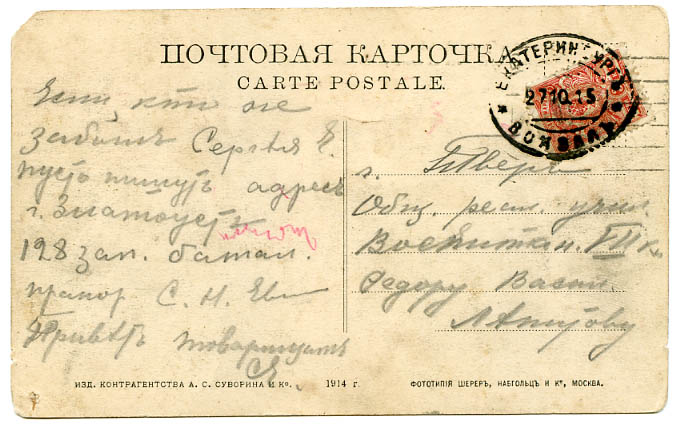 ПОЧТОВАЯ КАРТОЧКА
CARTE POSTALE.
ЕКАТЕРИНБУРГЪ
27 10 15
ВОКЗАЛЪ
Если кто не
забылъ Сергѣя Е.
пусть пишутъ адресъ
г. Златоустъ
128 зап. батал.
прапор С. Н.
Привѣтъ товарищамъ
г. Тверь
Общ. реал. учил.
Воспитан. VII кл
Федору Васил.
ИЗД. КОНТРАГЕНТСТВА А. С. СУВОРИНА И Ко.
1914 г.
ФОТОТИПІЯ ШЕРЕРЪ, НАБГОЛЬЦЪ И Ко, МОСКВА.